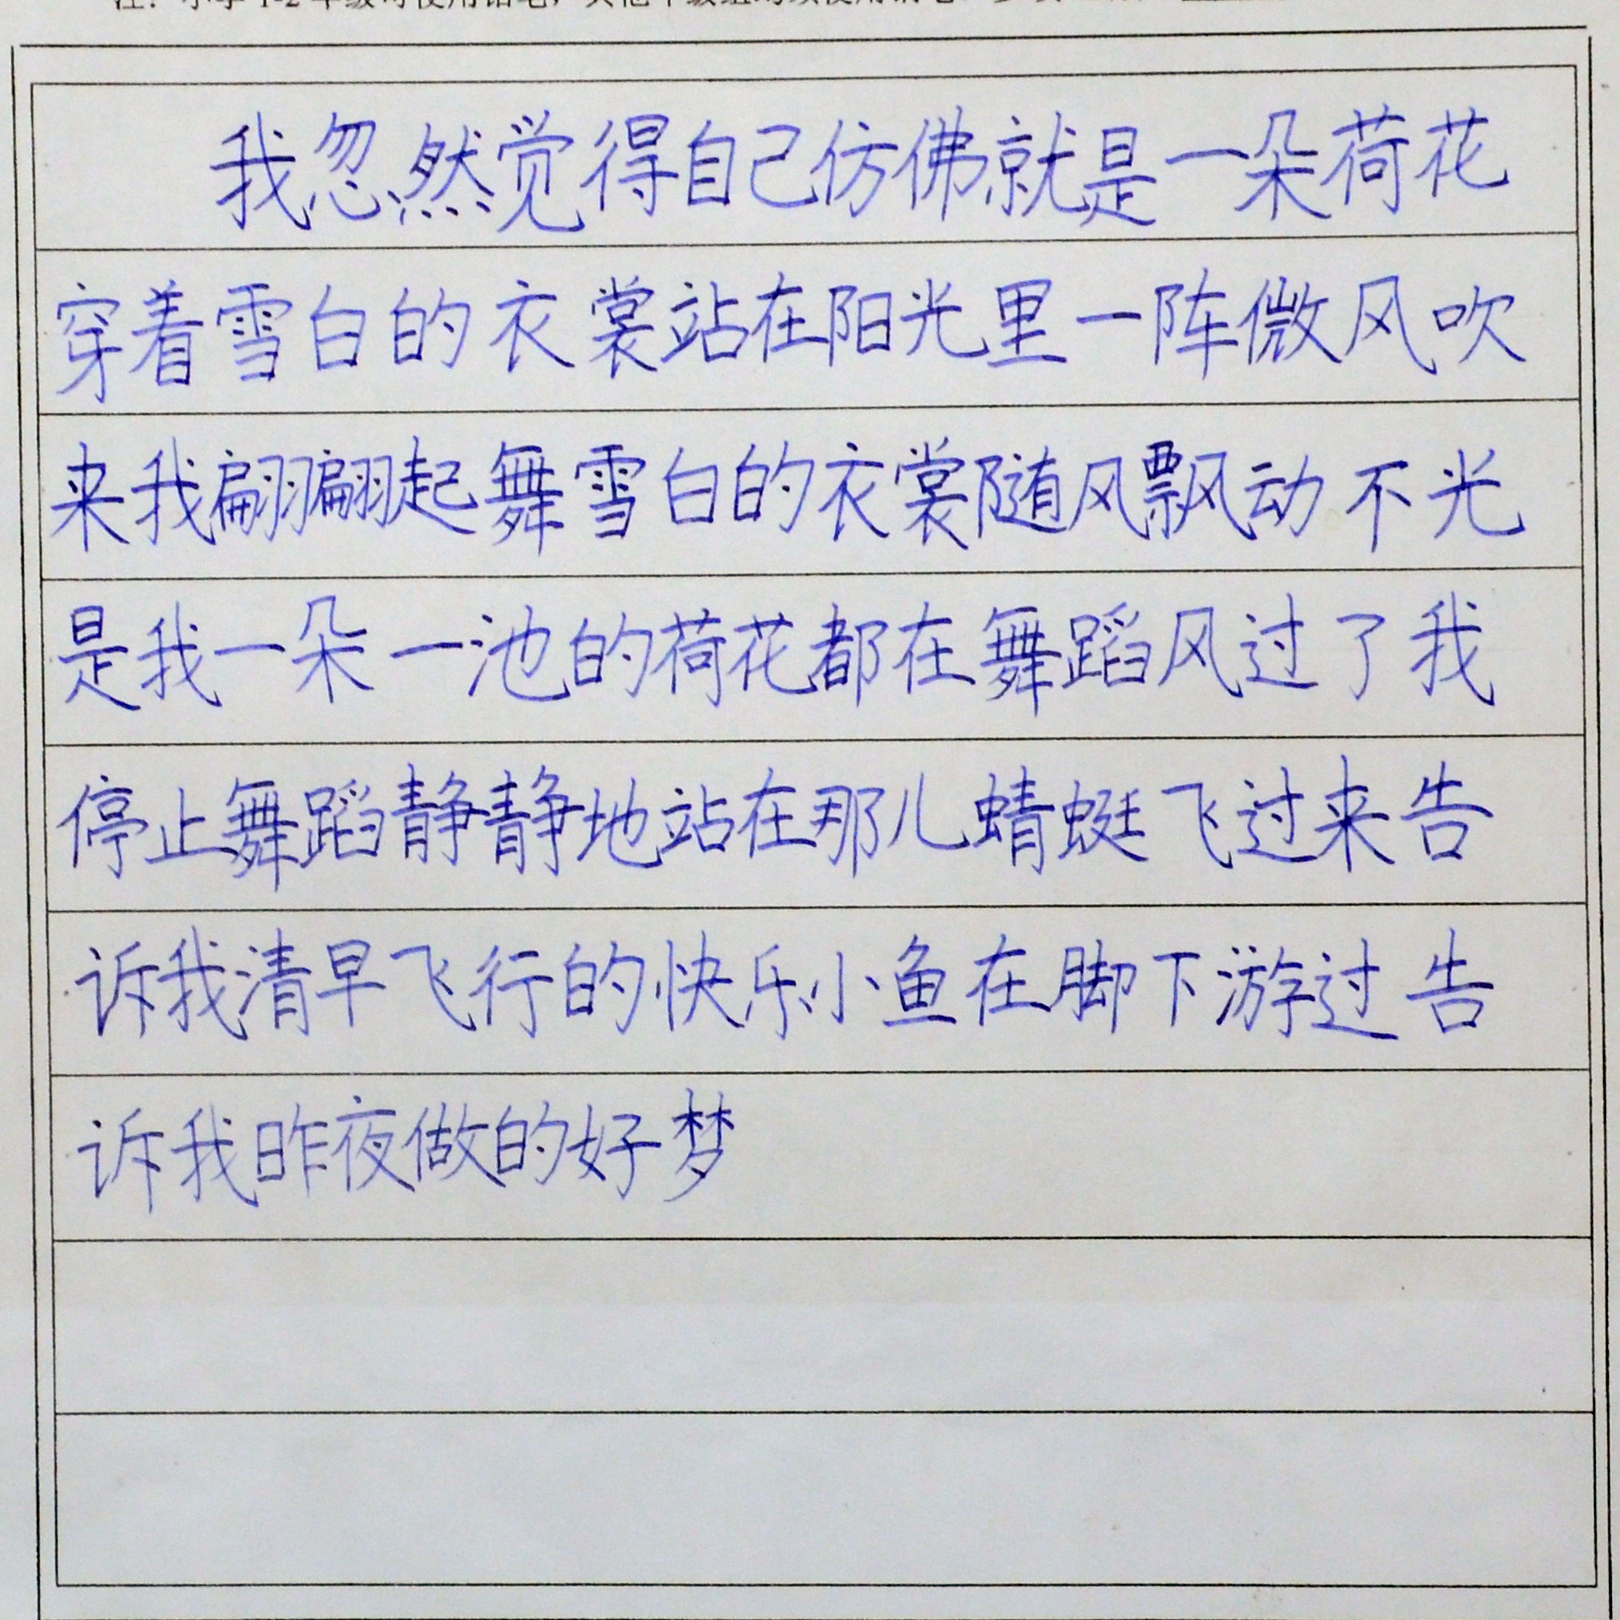 我忽然觉得自己仿佛就是一朵荷花
穿着雪白的衣裳站在阳光里一阵微风吹
来我翩翩起舞雪白的衣裳随风飘动不光
是我一朵一池的荷花都在舞蹈风过了我
停止舞蹈静静地站在那儿蜻蜓飞过来告
诉我清早飞行的快乐小鱼在脚下游过告
诉我昨夜做的好梦